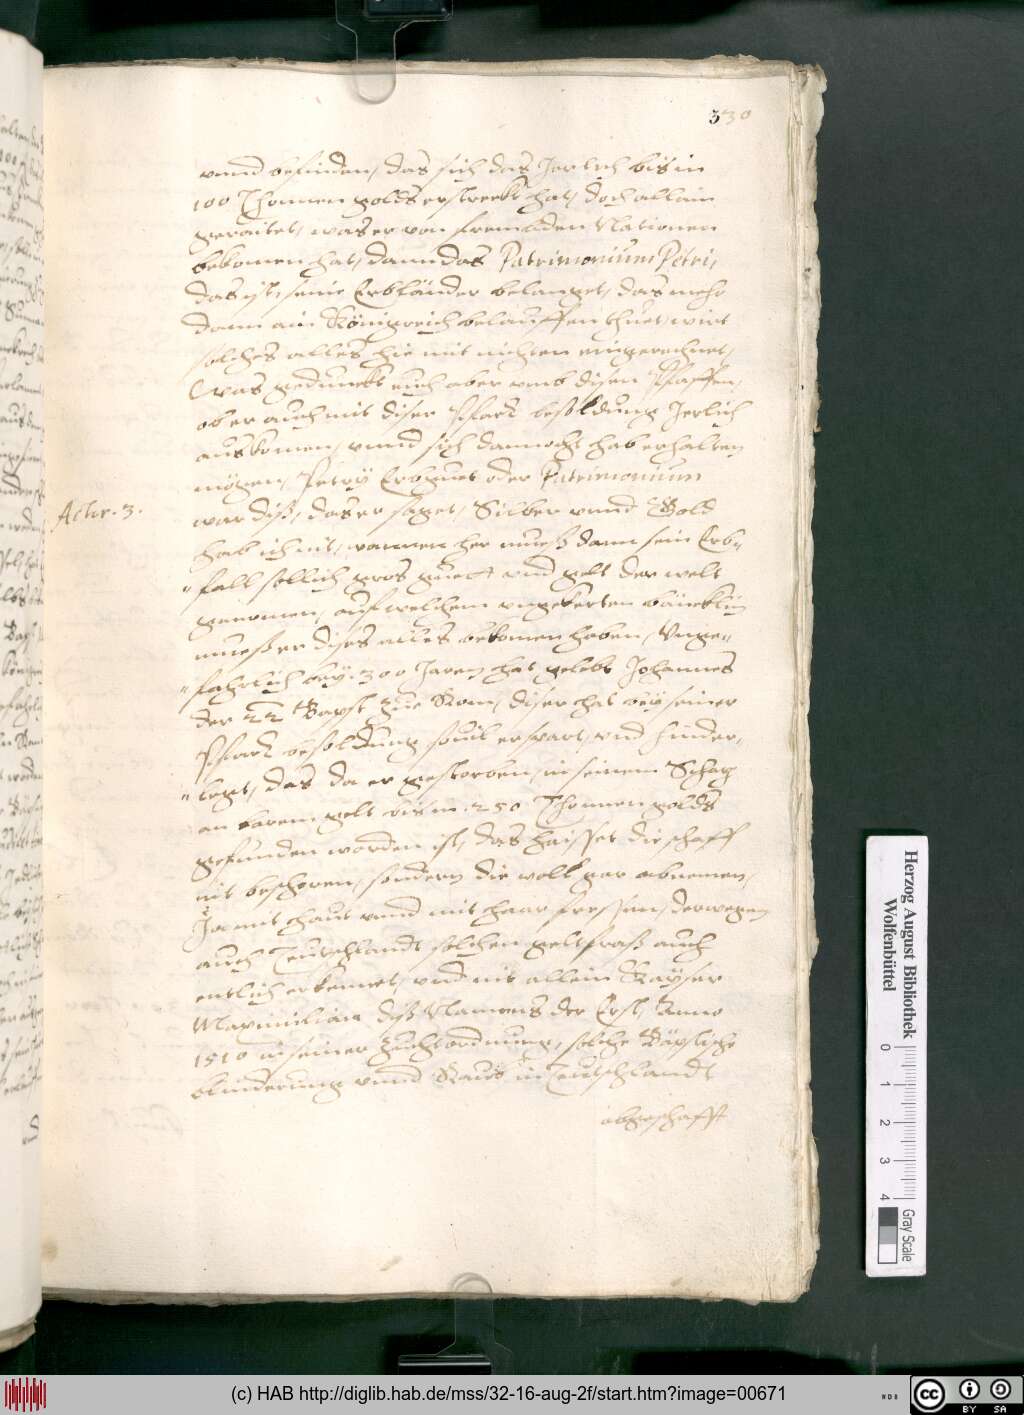 330
vnnd befinden, das sich das Jerlich bis in
100 Thonnen golds erstreckt hat, doch allain
geraitet, was er von frembden Nationen
bekomen hat, dann das Patrimonium Petri,
das ist, seine Erbländer belanget, das mehr
dann ain Königreich belauffen thuet, wirt
solches alles hie mit nichten eingerechnet,
Was gedunckt euch aber vmb disen Pfaffen,
ob er auch mit diser Pfarr besoldung Jerlich
auskomen, vnnd sich dannocht hab erhalten
mögen, Petry Erbguet oder Patrimonium
war diß, das er saget, Silber vnnd Gold
Actor. 3.
hab ich nit, wannen her mueß dann sein Erb-
fall sollich gros guett vnd gelt der welt
genomen, auf welchem vngekerten bäncklin
mueß er dises alles bekomen haben, Vnge-
fahrlich bey 300 Jaren hat gelebt Johannes
der 22 Bapst zue Rom, diser hat bey seiner
Pfarr besoldung souil erspart, vnd hinder-
legt, das da er gestorben, in seinem Schatz
an barem gelt bis in 250 Thonnen golds
gefunden worden ist, das haisset die schaff
nit beschoren, sondern die woll gar abnemen,
Ja mit haut vnnd mit haar fressen, derwegen
auch Teutschlandt solchen geltfraß auch
entlich erkennet, vnd nit allein Kayser
Maximilian diß Namens der Erst, Anno
1510 in seiner zuchtordnung, solche Bäpstische
blinderung vnnd Raub in Teutschlandt
abgeschafft
Herzog August Bibliothek
Wolfenbüttel
0 1 2 3 4
Gray Scale
(c) HAB http://diglib.hab.de/mss/32-16-aug-2f/start.htm?image=00671
WDB
cc BY SA